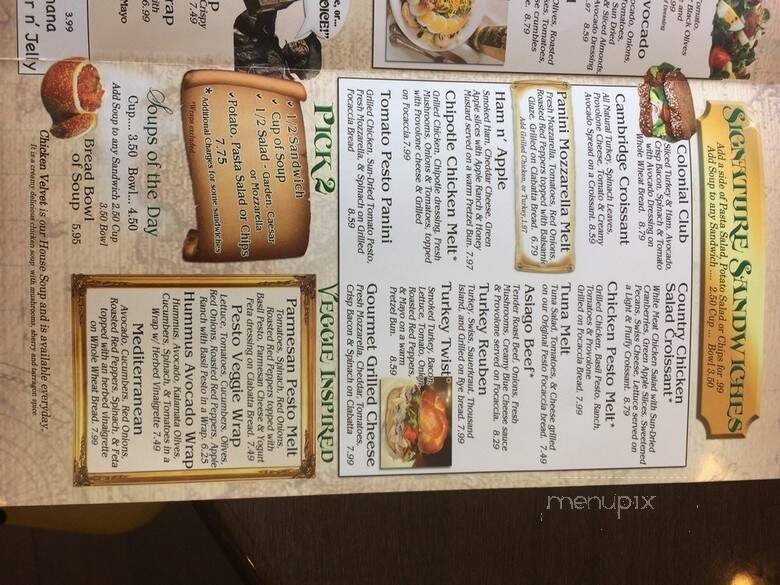 Signature Sandwiches
Add a side of Pasta Salad, Potato Salad or Chips for .99
Add Soup to any Sandwich .... 2.50 Cup ... Bowl 3.50
Colonial Club
Sliced Turkey & Ham, Avocado,
Crisp Bacon, Spinach & Tomato
with Avocado Dressing on
Whole Wheat Bread. 8.79
Cambridge Croissant
All Natural Turkey, Spinach Leaves,
Provolone Cheese, Tomato & Creamy
Avocado Spread on a Croissant. 8.59
Panini Mozzarella Melt
Fresh Mozzarella, Tomatoes, Red Onions,
Roasted Red Peppers topped with Balsamic
Glaze, Grilled on Ciabatta Bread. 6.79
Add Grilled Chicken, or Turkey 1.97
Ham n' Apple
Smoked Ham, Cheddar Cheese, Green
Apple slices with Apple Ranch & Honey
Mustard served on a warm Pretzel Bun. 7.97
Chipotle Chicken Melt*
Grilled Chicken, Chipotle dressing, Fresh
Mushrooms, Onions & Tomatoes, topped
with Provolone cheese & Grilled
on Focaccia 7.99
Tomato Pesto Panini
Grilled Chicken, Sun-Dried Tomato Pesto,
Fresh Mozzarella, & Spinach on Grilled
Focaccia Bread 8.59
Country Chicken
Salad Croissant*
White Meat Chicken Salad with Sun-Dried
Cranberries, Green Apple Slices, Sweetened
Pecans, Swiss Cheese, Lettuce served on
a Light & Fluffy Croissant. 8.79
Chicken Pesto Melt*
Grilled Chicken, Basil Pesto, Ranch,
Tomatoes & Fresh Mozzarella
Grilled on Focaccia Bread. 7.99
Tuna Melt
Tuna Salad, Tomatoes, & Cheese grilled
on our Original Pesto Focaccia bread. 7.49
Asiago Beef*
Tender Roast Beef, Onions, Fresh
Mushrooms, Creamy Blue Cheese sauce
& Provolone served on Focaccia 8.29
Turkey Reuben
Turkey, Swiss, Sauerkraut, Thousand
Island, and Grilled on Rye bread. 7.99
Turkey Twist*
Smoked Turkey, Bacon,
Lettuce, Tomato, Onion,
Roasted Red Peppers,
& Mayo on a warm
Pretzel Bun. 8.59
Gourmet Grilled Cheese
Fresh Mozzarella, Cheddar, Tomatoes,
Crisp Bacon & Spinach on Ciabatta 7.99
Pick 2
✓ 1/2 Sandwich
✓ Cup of Soup
✓ 1/2 Salad - Garden, Caesar,
or Mozzarella
✓ Potato, Pasta Salad or Chips
7.75
★ Additional Charges for some sandwiches
*Wraps excluded
Soups of the Day
Cup.... 3.50 Bowl... 4.50
Add Soup to any Sandwich 2.50 Cup
3.50 Bowl
Bread Bowl
of Soup 5.95
Veggie Inspired
Parmesan Pesto Melt
Tomatoes, Spinach, Red Onions,
Roasted Red Peppers topped with
Basil Pesto, Parmesan Cheese & Yogurt
Feta dressing on Ciabatta Bread. 7.49
Pesto Veggie Wrap
Lettuce, Tomatoes, Cucumbers, Olives,
Red Onions, Roasted Red Peppers, Apple
Ranch with Basil Pesto in a Wrap. 6.25
Hummus Avocado Wrap
Hummus, Avocado, Kalamata Olives,
Cucumbers, Spinach, & Tomatoes in a
Wrap w/ Herbed Vinaigrette 7.49
Mediterranean
Avocado, Cucumbers, Red Onions,
Roasted Red Peppers, Spinach, & Feta
topped with an herbed vinaigrette
on Whole Wheat Bread. 7.99
Chicken Velvet is our House Soup and is available everyday.
It is a creamy delicious chicken soup, with mushrooms, sherry and tarragon spice
vocado
ocado, Onions,
Tomatoes,
Sun Dried
& Sliced Almonds,
Avocado Dressing
.97 8.59
Olives, Roasted
es, Tomatoes,
se crumbles
e. 8.79
Black Olives
.99
OICE!"
Crispy
7.49
rap
6.99
Mayo
3.99
nana
r n' Jelly
menupix